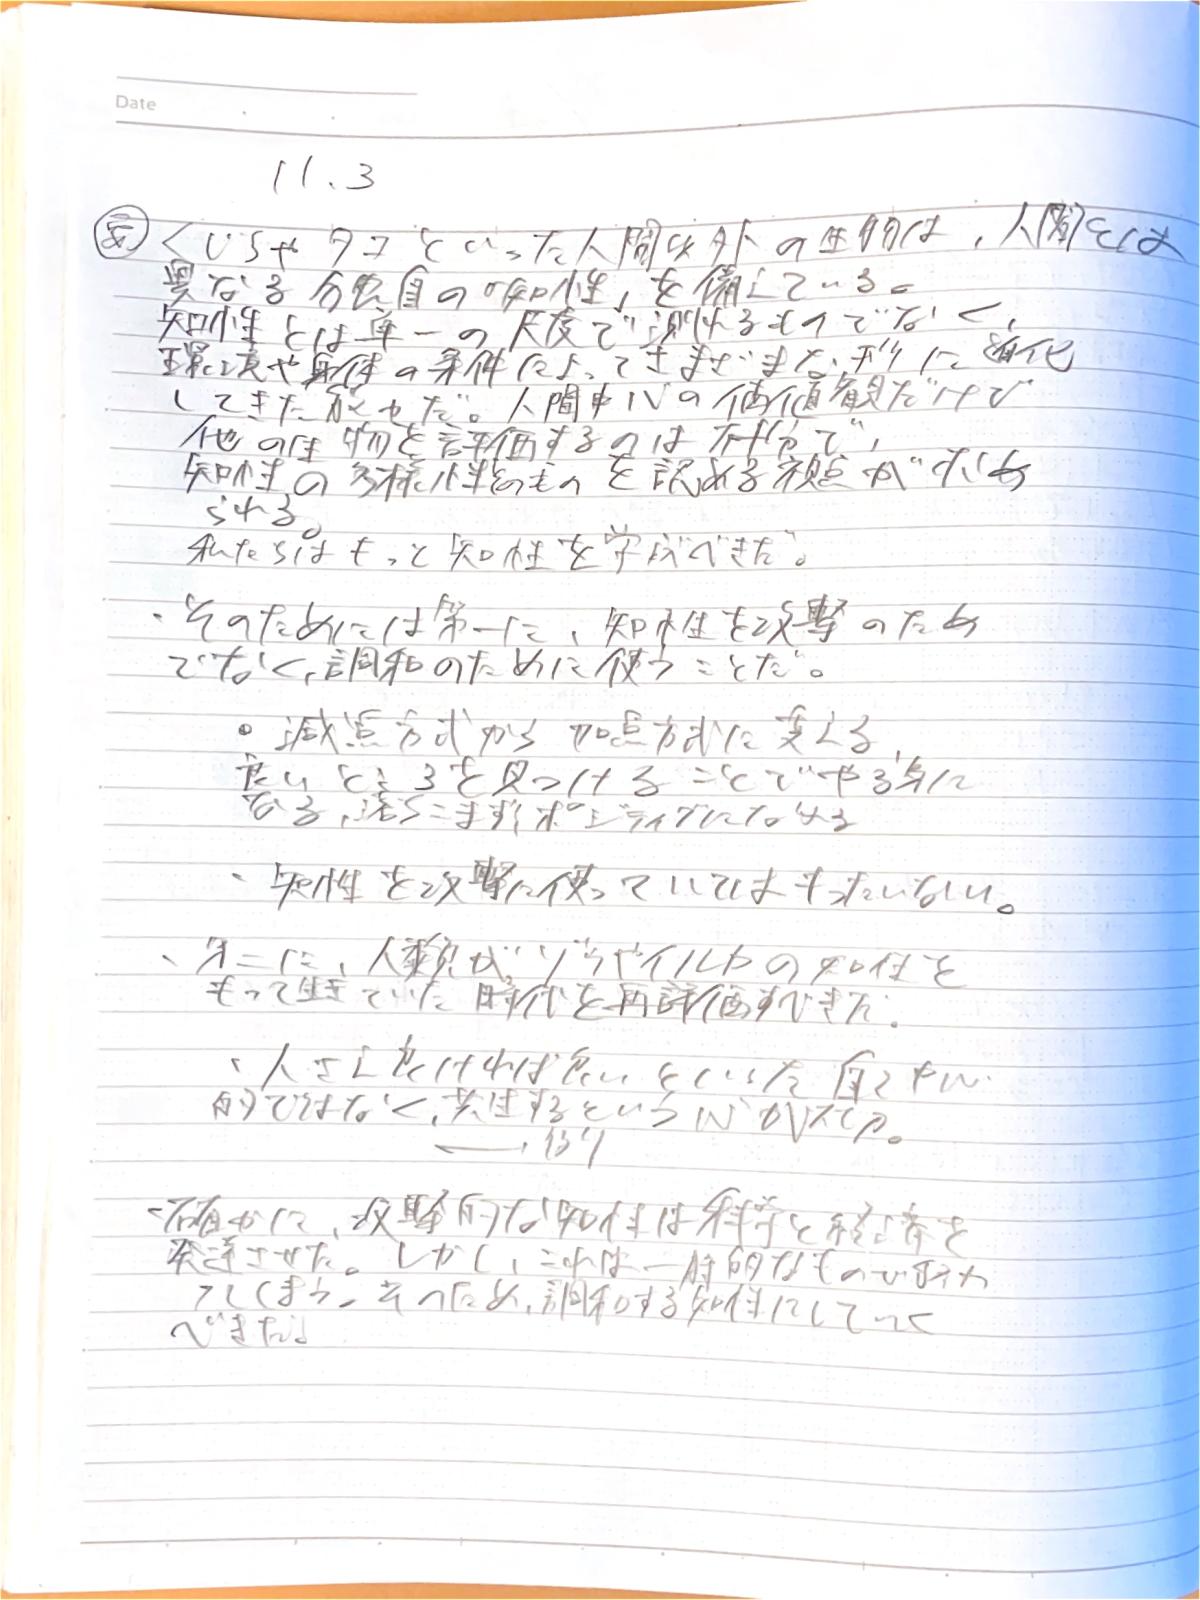 Date
11.3
要 くじらやタコといった人間以外の生物は、人間とは
異なる独自の「知性」を備えている。
知性とは単一の尺度で測れるものでなく、
環境や身体の条件によってさまざまな形に進化
してきた故せだ。人間中心の価値観だけで
他の生物を評価するのは不十分で、
知性の多様性そのものを認める視点が求め
られる。
私たちはもっと知性を学ぶべきだ。
・そのためには第一に、知性を攻撃のため
でなく、調和のために使うことだ。
・減点方式から加点方式に変える、
良いところを見つけることでやる気に
なる、落ちこまずポジティブになれる
・知性を攻撃に使っていてはもったいない。
・第二に、人類がゾウやイルカの知性を
もって生きていた時代を再評価すべきだ。
・人さえ良ければ良いといった
的ではなく、共生するという心が大切。
・確かに、攻撃的な知性は科学と経済を
発達させた。しかし、これは一時的なもので
てしまう。そのため、調和する知性にしていく
べきだ。